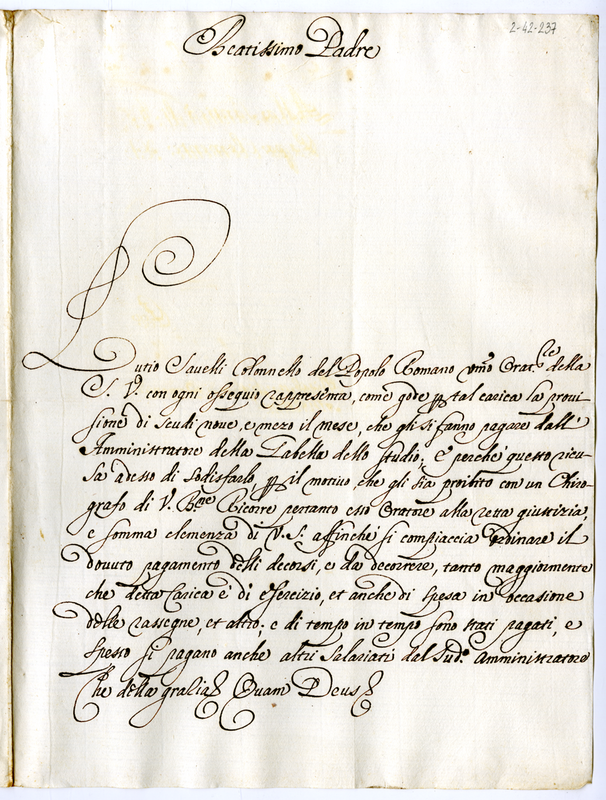 2-42-237
Beatissimo Padre
Lutio Sauelli Colonnello del Popolo Romano vmo Orat.re della
S. V. con ogni ossequio rappresenta, come gode p tal carica la proui
sione di scudi noue, e mezo il mese, che gli si fanno pagare dall'
Amministratore della Tabella dello studio; E perche questo ricu
sa adesso di sodisfarlo, p il motiuo, che gli sia proibito con un Chiro
grafo di V. Bne Ricorre pertanto esso Oratore alla retta giustizia
e somma clemenza di V. S. affinche si compiaccia ordinare il
douuto pagamento delli decorsi, e da decorrere, tanto maggiormente
che detta Carica è di esercizio, et anche di spesa in occasione
delle rassegne, et altro; e di tempo in tempo sono stati pagati, e
spesso si pagano anche altri salariati dal sud.o Amministratore
Che della gratia Quam Deus